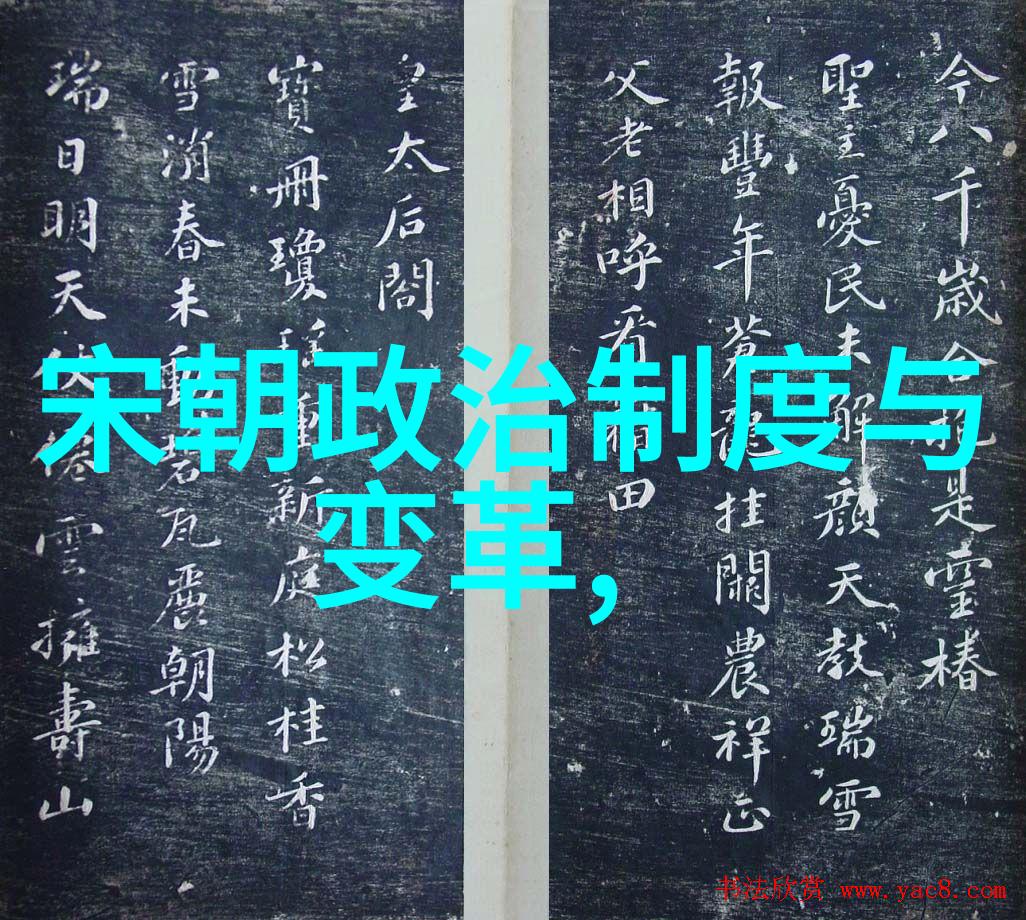 今八千歲合是靈椿
聖主憂民未解顏天教瑞雪
報豐年蒼龍挂闕農祥正
父老相呼看田
皇太后閣
寶冊瓊瑤重新庭松桂香
雪消春未動碧瓦麗朝陽
瑞日明天仗僊雲擁壽山
宋朝政治制度与
变革,
书法欣赏 www.yac8.com